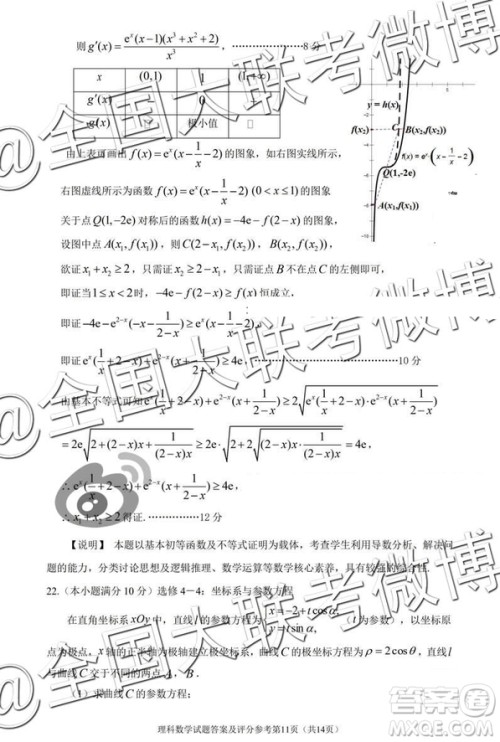 则 g′(x) = e^x(x−1)(x³+x²+2)/x³, ·····················8分
x (0,1) 1 (1,+∞)
g′(x) 0
g(x) 极小值
由上表可画出 f(x)=e^x(x−1/x−2) 的图象, 如右图实线所示,
右图虚线所示为函数 f(x)=e^x(x−1/x−2) (0<x≤1) 的图象
关于点 Q(1,-2e) 对称后的函数 h(x)=−4e−f(2−x) 的图象,
设图中点 A(x₁,f(x₁)), 则 C(2−x₁,f(x₂)), B(x₂,f(x₂)),
欲证 x₁+x₂≥2, 只需证 x₂≥2−x₁, 只需证点 B 不在点 C 的左侧即可,
即证当 1≤x<2 时, −4e−f(2−x)≥f(x) 恒成立,
即证 −4e−e^(2−x)(−x−1/(2−x))≥e^x(x−1/x−2),
即证 e^x(1/x+2−x)+e^(2−x)(x+1/(2−x))≥4e, ·····················10分
由基本不等式可知 e^x(1/x+2−x)+e^(2−x)(x+1/(2−x))≥2√(e^x(1/x+2−x)·e^(2−x)(x+1/(2−x)))
=2e√(2+(2−x)x+1/((2−x)x))≥2e·√(2+2√((2−x)x·1/((2−x)x)))=4e,
∴e^x(1/x+2−x)+e^(2−x)(x+1/(2−x))≥4e,
∴x₁+x₂≥2得证.·············12分
【说明】 本题以基本初等函数及不等式证明为载体, 考查学生利用导数分析、解决问
题的能力, 分类讨论思想及逻辑推理、数学运算等数学核心素养, 具有较强的综合性.
22.(本小题满分10分) 选修4—4: 坐标系与参数方程
在直角坐标系 xOy 中, 直线 l 的参数方程为 { x=−2+tcosα, y=tsinα, (t 为参数), 以坐标原
点为极点, x 轴的正半轴为极轴建立极坐标系, 曲线 C 的极坐标方程为 ρ=2cosθ, 直线 l
与曲线 C 交于不同的两点 A, B.
(1) 求曲线 C 的参数方程;
理科数学试题答案及评分参考第11页(共14页)
y=h(x)
f(x₂)
C
B(x₂,f(x₂))
f(x)=e^x·(x−1/x−2)
Q(1,-2e)
A(x₁,f(x₁))
@全国大联考微博
@全国大联考微博
@全国大联考微博
答案圈
MXQE.COM